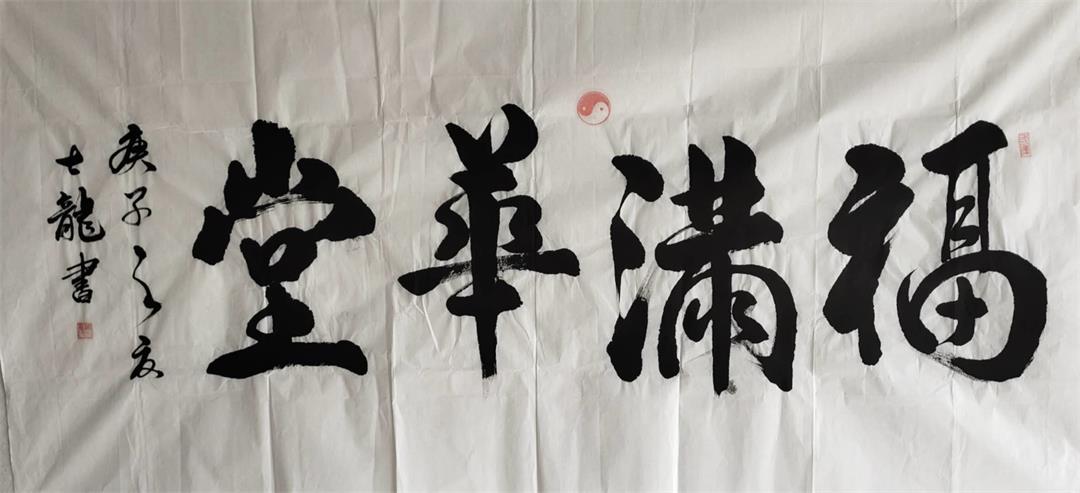 福滿華堂
庚子之夏
士龍書